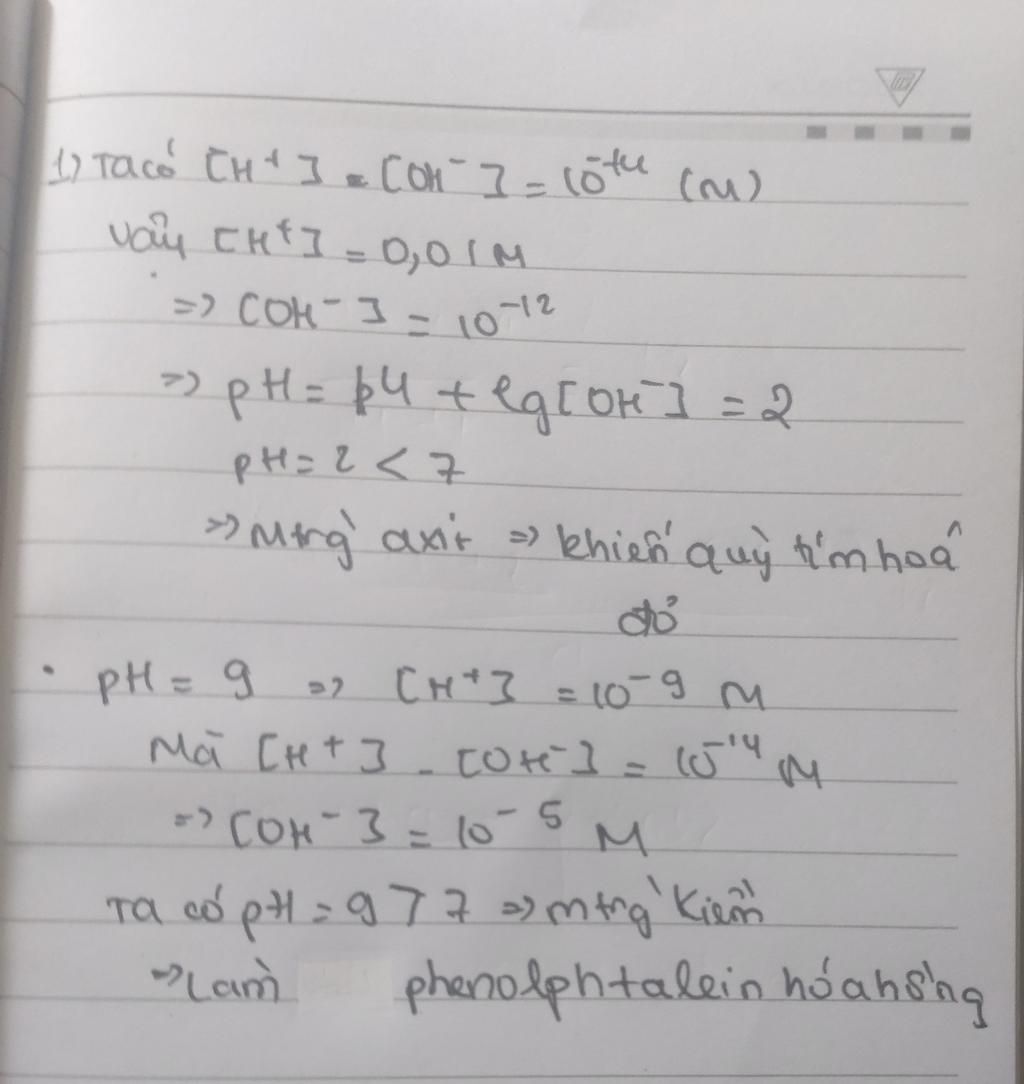 1) Ta có [H+] . [OH-] = 10^-14 (M)
Vậy [H+] = 0,01M
=> [OH-] = 10^-12
=> pH = 14 + lg[OH-] = 2
pH = 2 < 7
=> Mtrg axit => khiến quỳ tím hoá
đỏ
• pH = 9 => [H+] = 10^-9 M
Mà [H+] . [OH-] = 10^-14 M
=> [OH-] = 10^-5 M
Ta có pH = 9 > 7 => mtrg Kiềm
=> Làm phenolphtalein hóa hồng